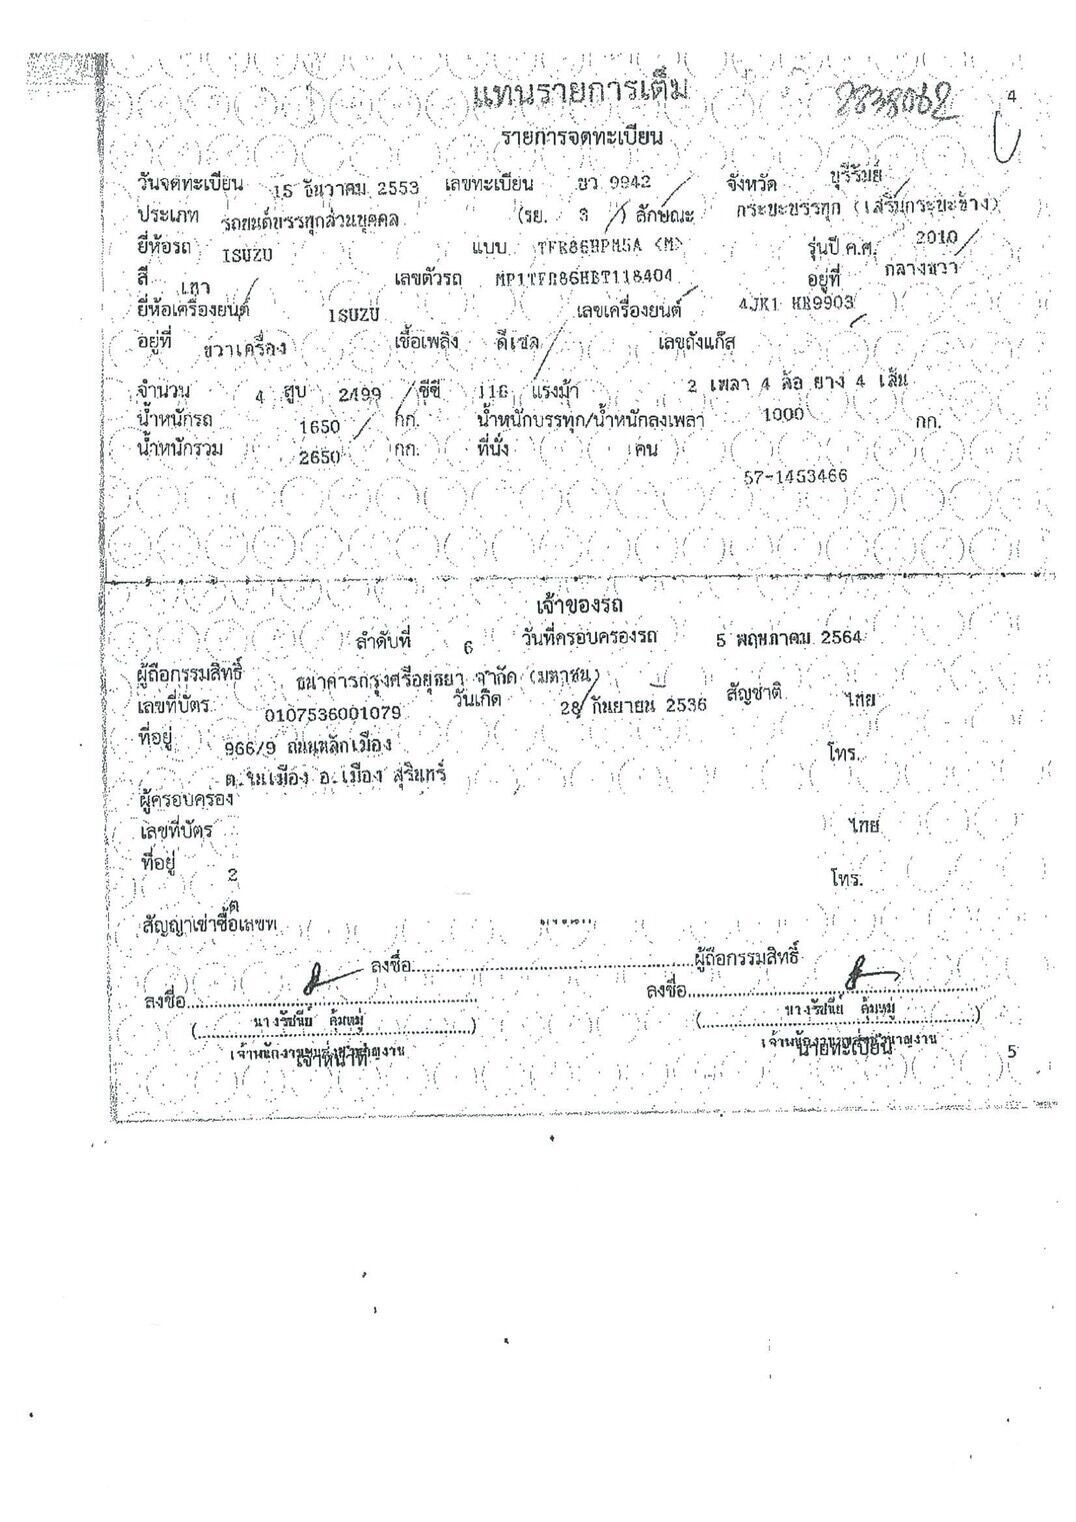 แทนรายการเต็ม
4
รายการจดทะเบียน
วันจดทะเบียน 15 ธันวาคม 2553 เลขทะเบียน 9942 จังหวัด บุรีรัมย์
ประเภท รถยนต์บรรทุกส่วนบุคคล (รย. 3 ) ลักษณะ กระบะบรรทุก (เสริมกระบะข้าง)
ยี่ห้อรถ ISUZU แบบ TFR86HPM5A <M> รุ่นปี ค.ศ. 2010
สี เทา เลขตัวรถ MP1TFR86HBT118404 อยู่ที่ กลางขวา
ยี่ห้อเครื่องยนต์ ISUZU เลขเครื่องยนต์ 4JK1 HR9903
อยู่ที่ ขวาเครื่อง เชื้อเพลิง ดีเซล เลขถังแก๊ส
จำนวน 4 สูบ 2499 ซีซี 116 แรงม้า 2 เพลา 4 ล้อ ยาง 4 เส้น
น้ำหนักรถ 1650 กก. น้ำหนักบรรทุก/น้ำหนักลงเพลา 1000 กก.
น้ำหนักรวม 2650 กก. ที่นั่ง คน
57-1453466
เจ้าของรถ
ลำดับที่ 6 วันที่ครอบครองรถ 5 พฤษภาคม 2564
ผู้ถือกรรมสิทธิ์ ธนาคารกรุงศรีอยุธยา จำกัด (มหาชน)
เลขที่บัตร 0107536001079 วันเกิด 28 กันยายน 2536 สัญชาติ ไทย
ที่อยู่ 966/9 ถนนหลักเมือง โทร.
ต.ในเมือง อ.เมือง สุรินทร์
ผู้ครอบครอง
เลขที่บัตร ไทย
ที่อยู่ 2 โทร.
ต
สัญญาเช่าซื้อเลขที่
ลงชื่อ ผู้ถือกรรมสิทธิ์
ลงชื่อ ลงชื่อ
(นางรัชนีย์ คุ้มหมู่) (นางรัชนีย์ คุ้มหมู่)
เจ้าพนักงานขนส่งชำนาญงาน เจ้าพนักงานขนส่งชำนาญงาน
เจ้าหน้าที่ นายทะเบียน
5